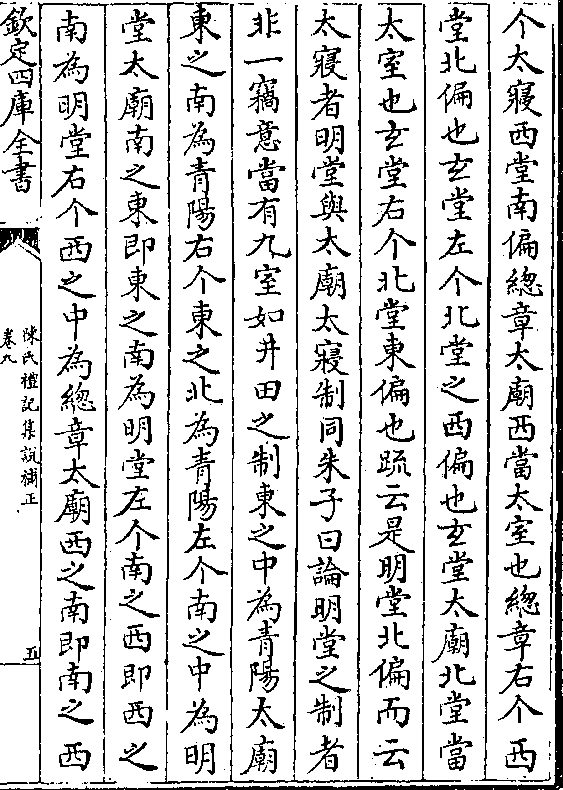 个太寢西堂南偏總章太廟西當太室也總章右个西
堂北偏也玄堂左个北堂之西偏也玄堂太廟北堂當
太室也玄堂右个北堂東偏也疏云是明堂北偏而云
太寢者明堂與太廟太寢制同朱子曰論明堂之制者
非一竊意當有九室如井田之制東之中為青陽太廟
東之南為青陽右个東之北為青陽左个南之中為明
堂太廟南之東即東之南為明堂左个南之西即西之
南為明堂右个西之中為總章太廟西之南即南之西
欽定四庫全書
陳氏禮記集說補正
卷九
五